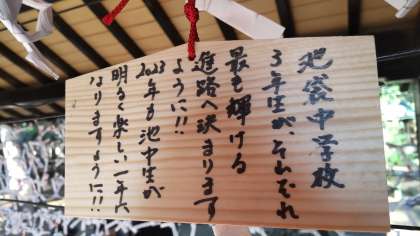 池袋中学校
3年生が、それぞれ
最も輝ける
進路へ決まります
ように!!
2023年も池中生が
明るく楽しい一年に
なりますように!!